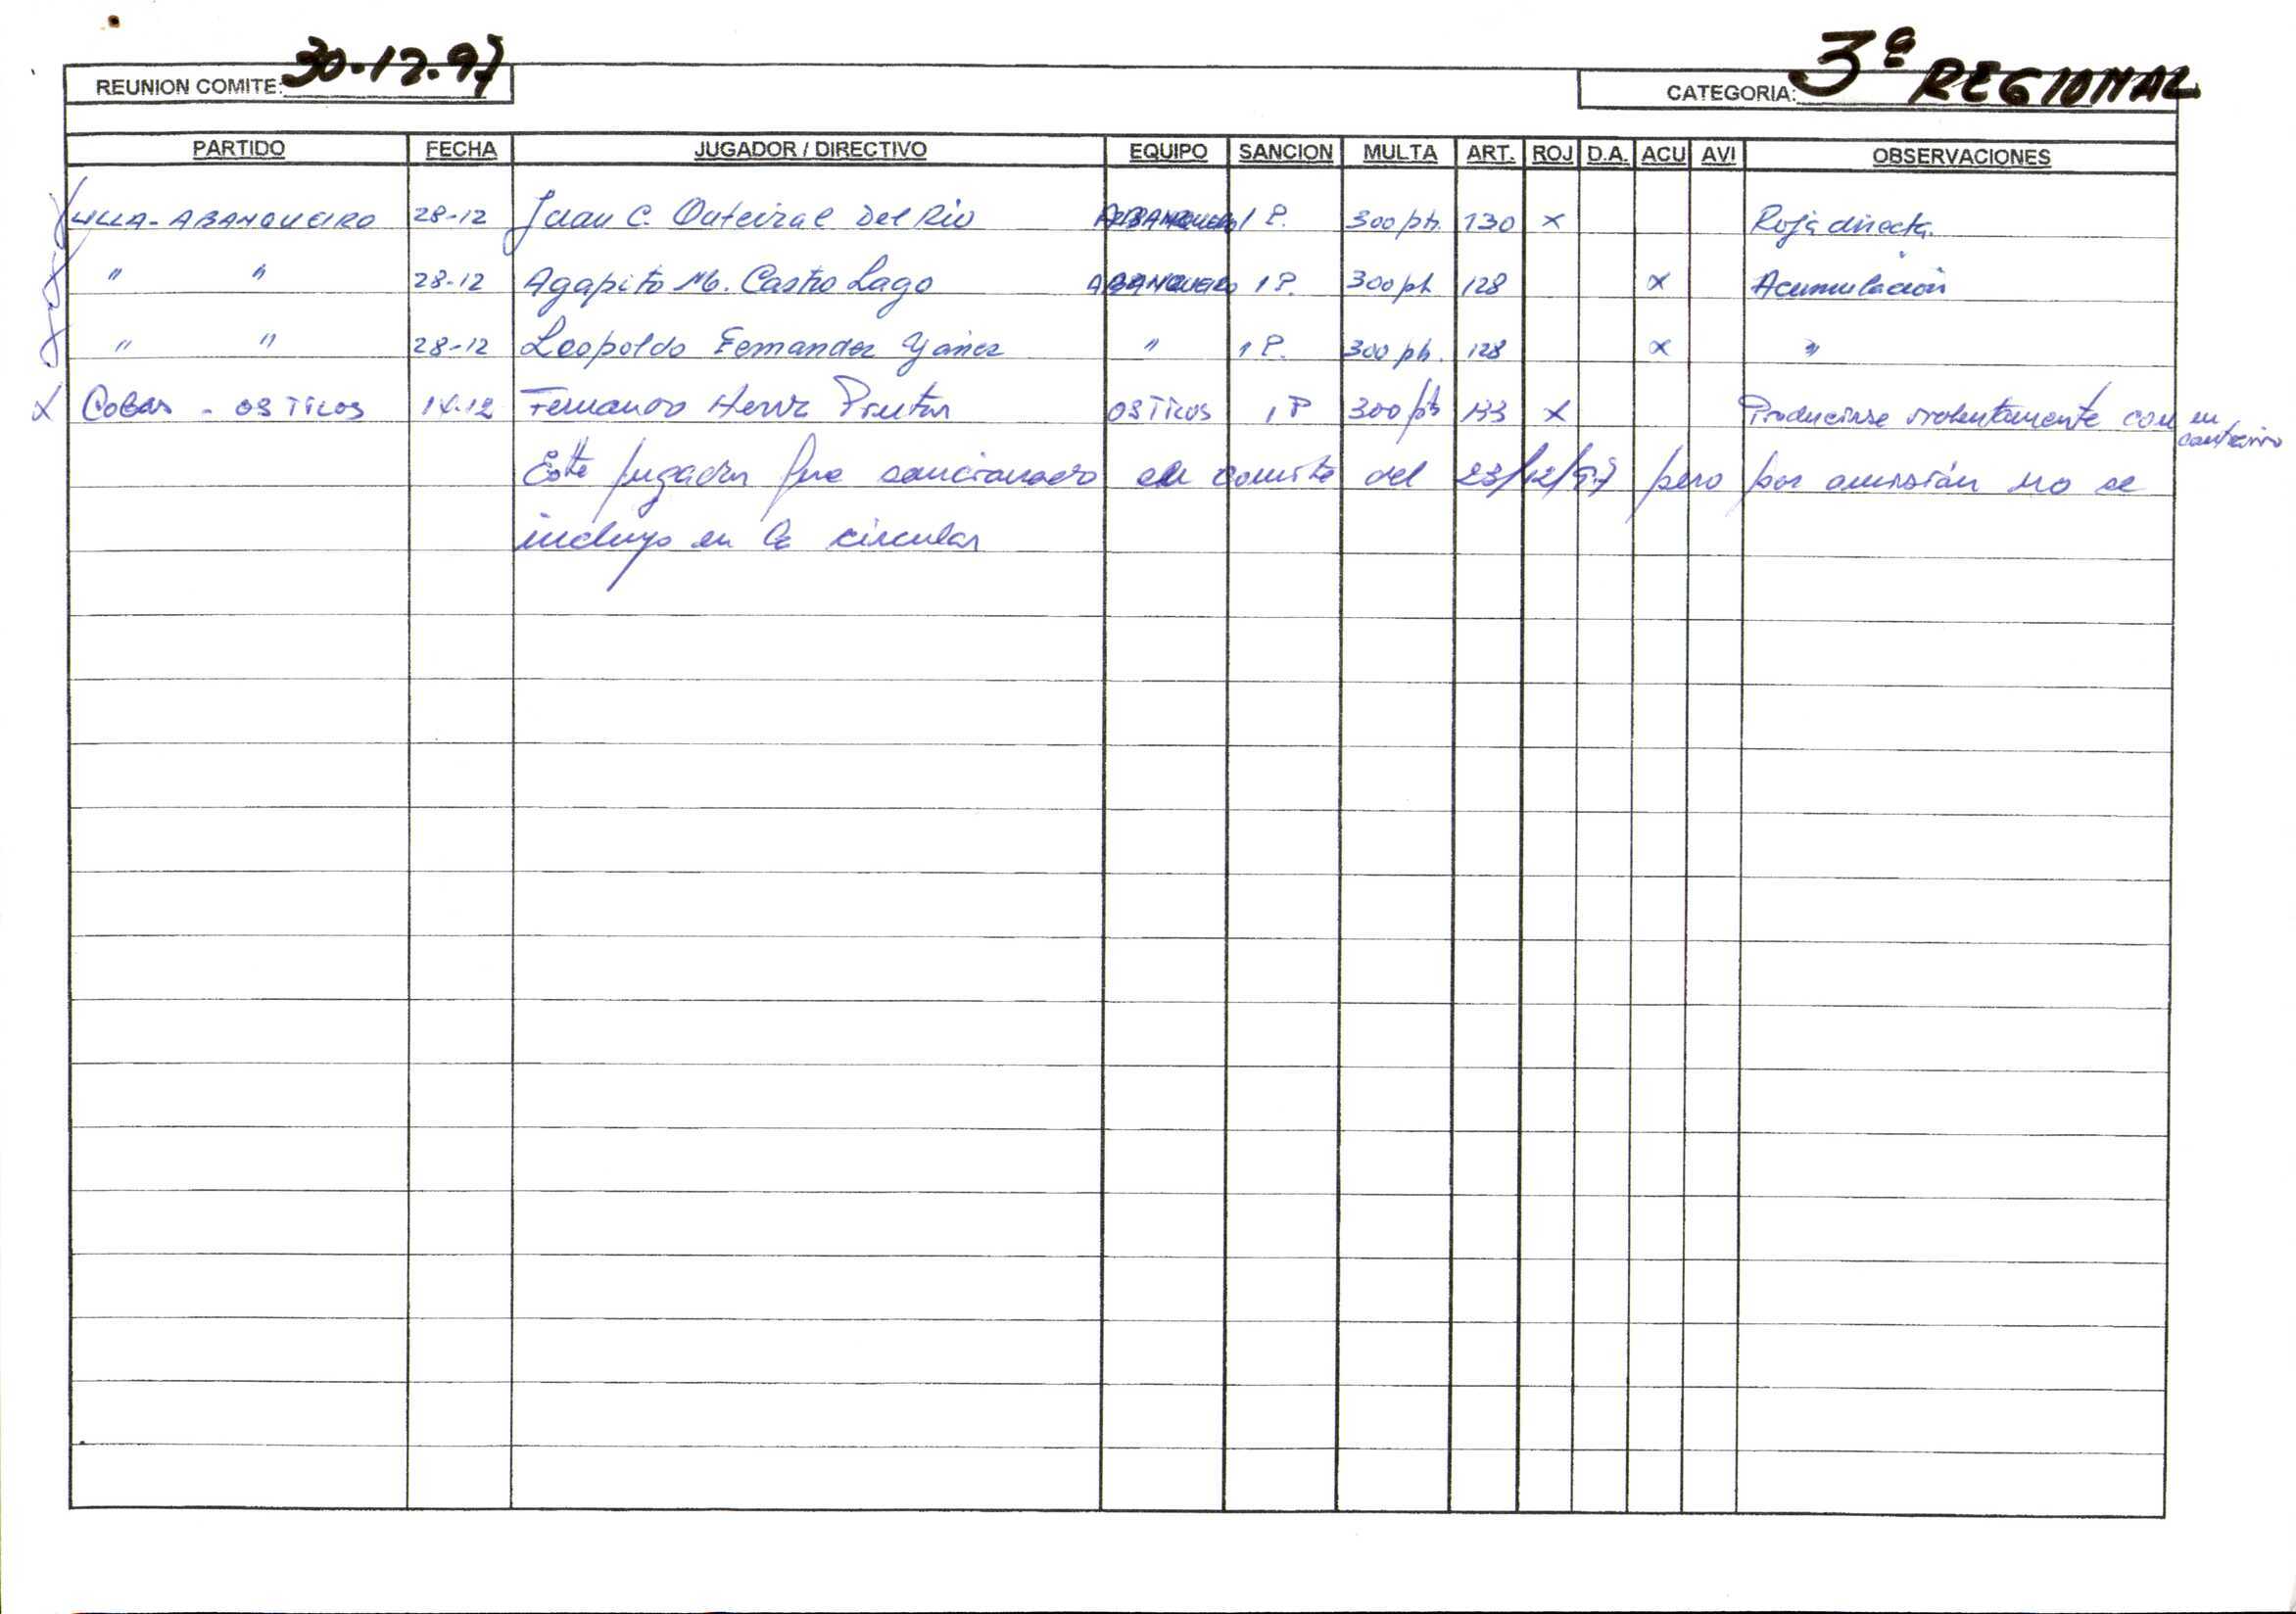 REUNION COMITE: 30-12-97
CATEGORIA: 3ª REGIONAL
PARTIDO FECHA JUGADOR / DIRECTIVO EQUIPO SANCION MULTA ART. ROJ D.A. ACU AVI OBSERVACIONES
ABANQUEIRO 28-12 Juan C. Outeiral Del Rio 1 P. 300 pts. 130 x Roja directa.
" " 28-12 Agapito M. Castro Lago ABANQUEIRO 1 P. 300 pts 128 x Acumulación
" " 28-12 Leopoldo Fernandez Yáñez " 1 P. 300 pts. 128 x "
x Cobas - OS TILOS 14-12 Fernando OS TILOS 1 P 300 pts 133 x Producirse violentamente con un
contrario
Este jugador fue sancionado en comite del 23/12/97 pero por omisión no se
incluyo en la circular